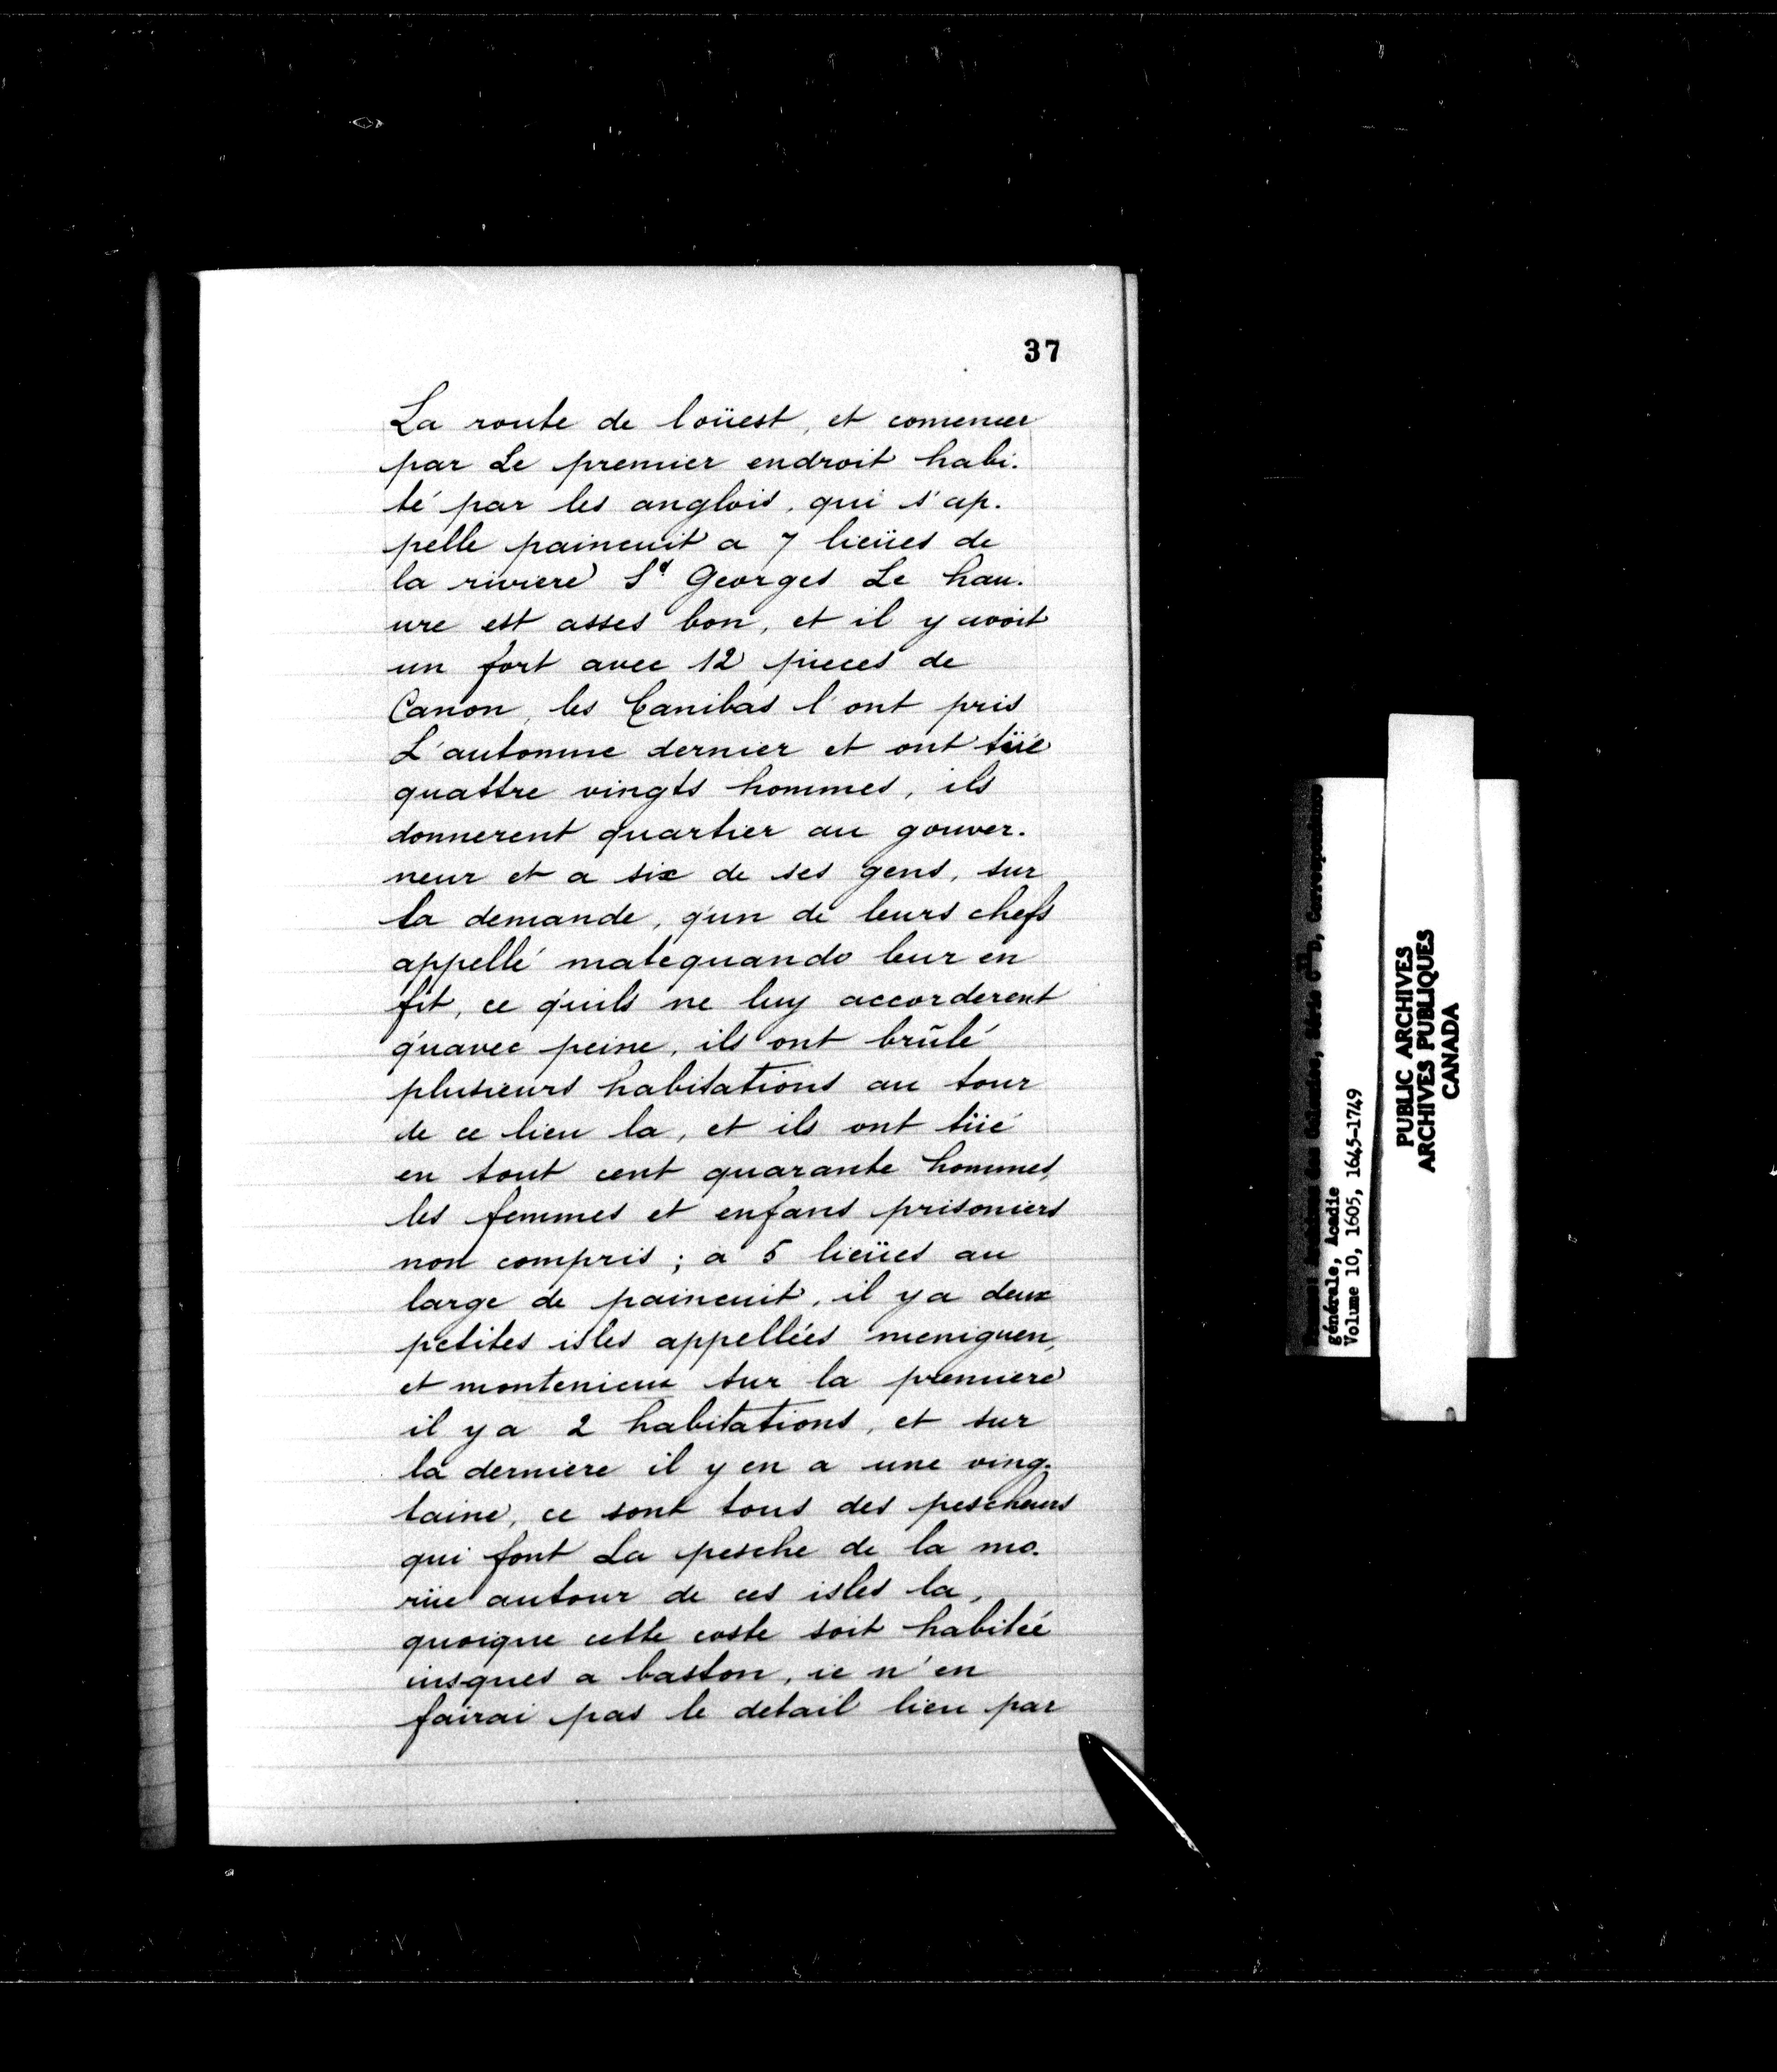 37
La route de loüest, et comencer
par Le premier endroit habi-
té par les anglois, qui s'ap-
pelle paincuit a 7 lieües de
la riviere St Georges Le hau-
ure est asses bon, et il y avoit
un fort avec 12 pieces de
Canon, les Canibas l'ont pris
L'automne dernier et ont tüé
quattre vingts hommes, ils
donnerent quartier au gouver-
neur et a six de ses gens, sur
la demande, qu'un de leurs chefs
appellé matequando leur en
fit, ce qu'ils ne luy accorderent
qu'avec peine, ils ont brûlé
plusieurs habitations au tour
de ce lieu la, et ils ont tüé
en tout cent quarante hommes,
les femmes et enfans prisoniers
non compris; a 5 lieües au
large de paincuit, il y a deux
petites isles appellées meniguen,
et montenicux sur la premiere
il y a 2 habitations, et sur
la derniere il y en a une ving-
taine, ce sont tous des pescheurs
qui font La pesche de la mo-
rüe autour de ces isles la,
quoique cette coste soit habitée
iusques a baston, ie n'en
fairai pas le detail lieu par
générale, Acadie
Volume 10, 1605, 1645-1749
PUBLIC ARCHIVES
ARCHIVES PUBLIQUES
CANADA